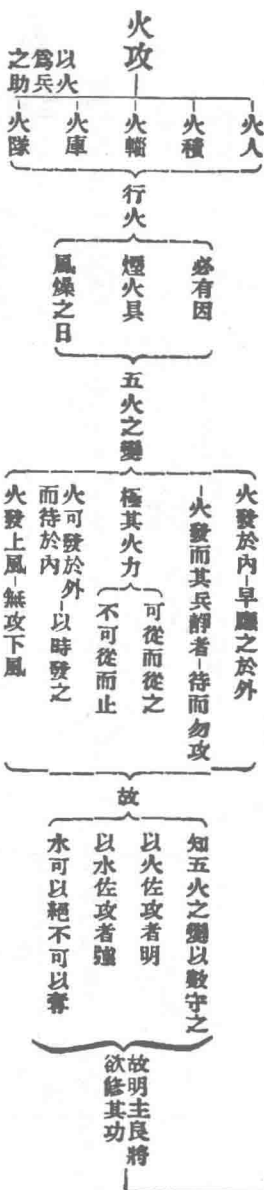 火攻
以火
爲兵
之助
火人
火積
火輜
火庫
火隊
行火
必有因
煙火具
風燥之日
五火之變
火發於內-早應之於外
火發而其兵靜者-待而勿攻
極其火力
可從而從之
不可從而止
火可發於外
而待於內
以時發之
火發上風-無攻下風
故
知五火之變以數守之
以火佐攻者明
以水佐攻者強
水可以絕不可以奪
故明主良將
欲修其功